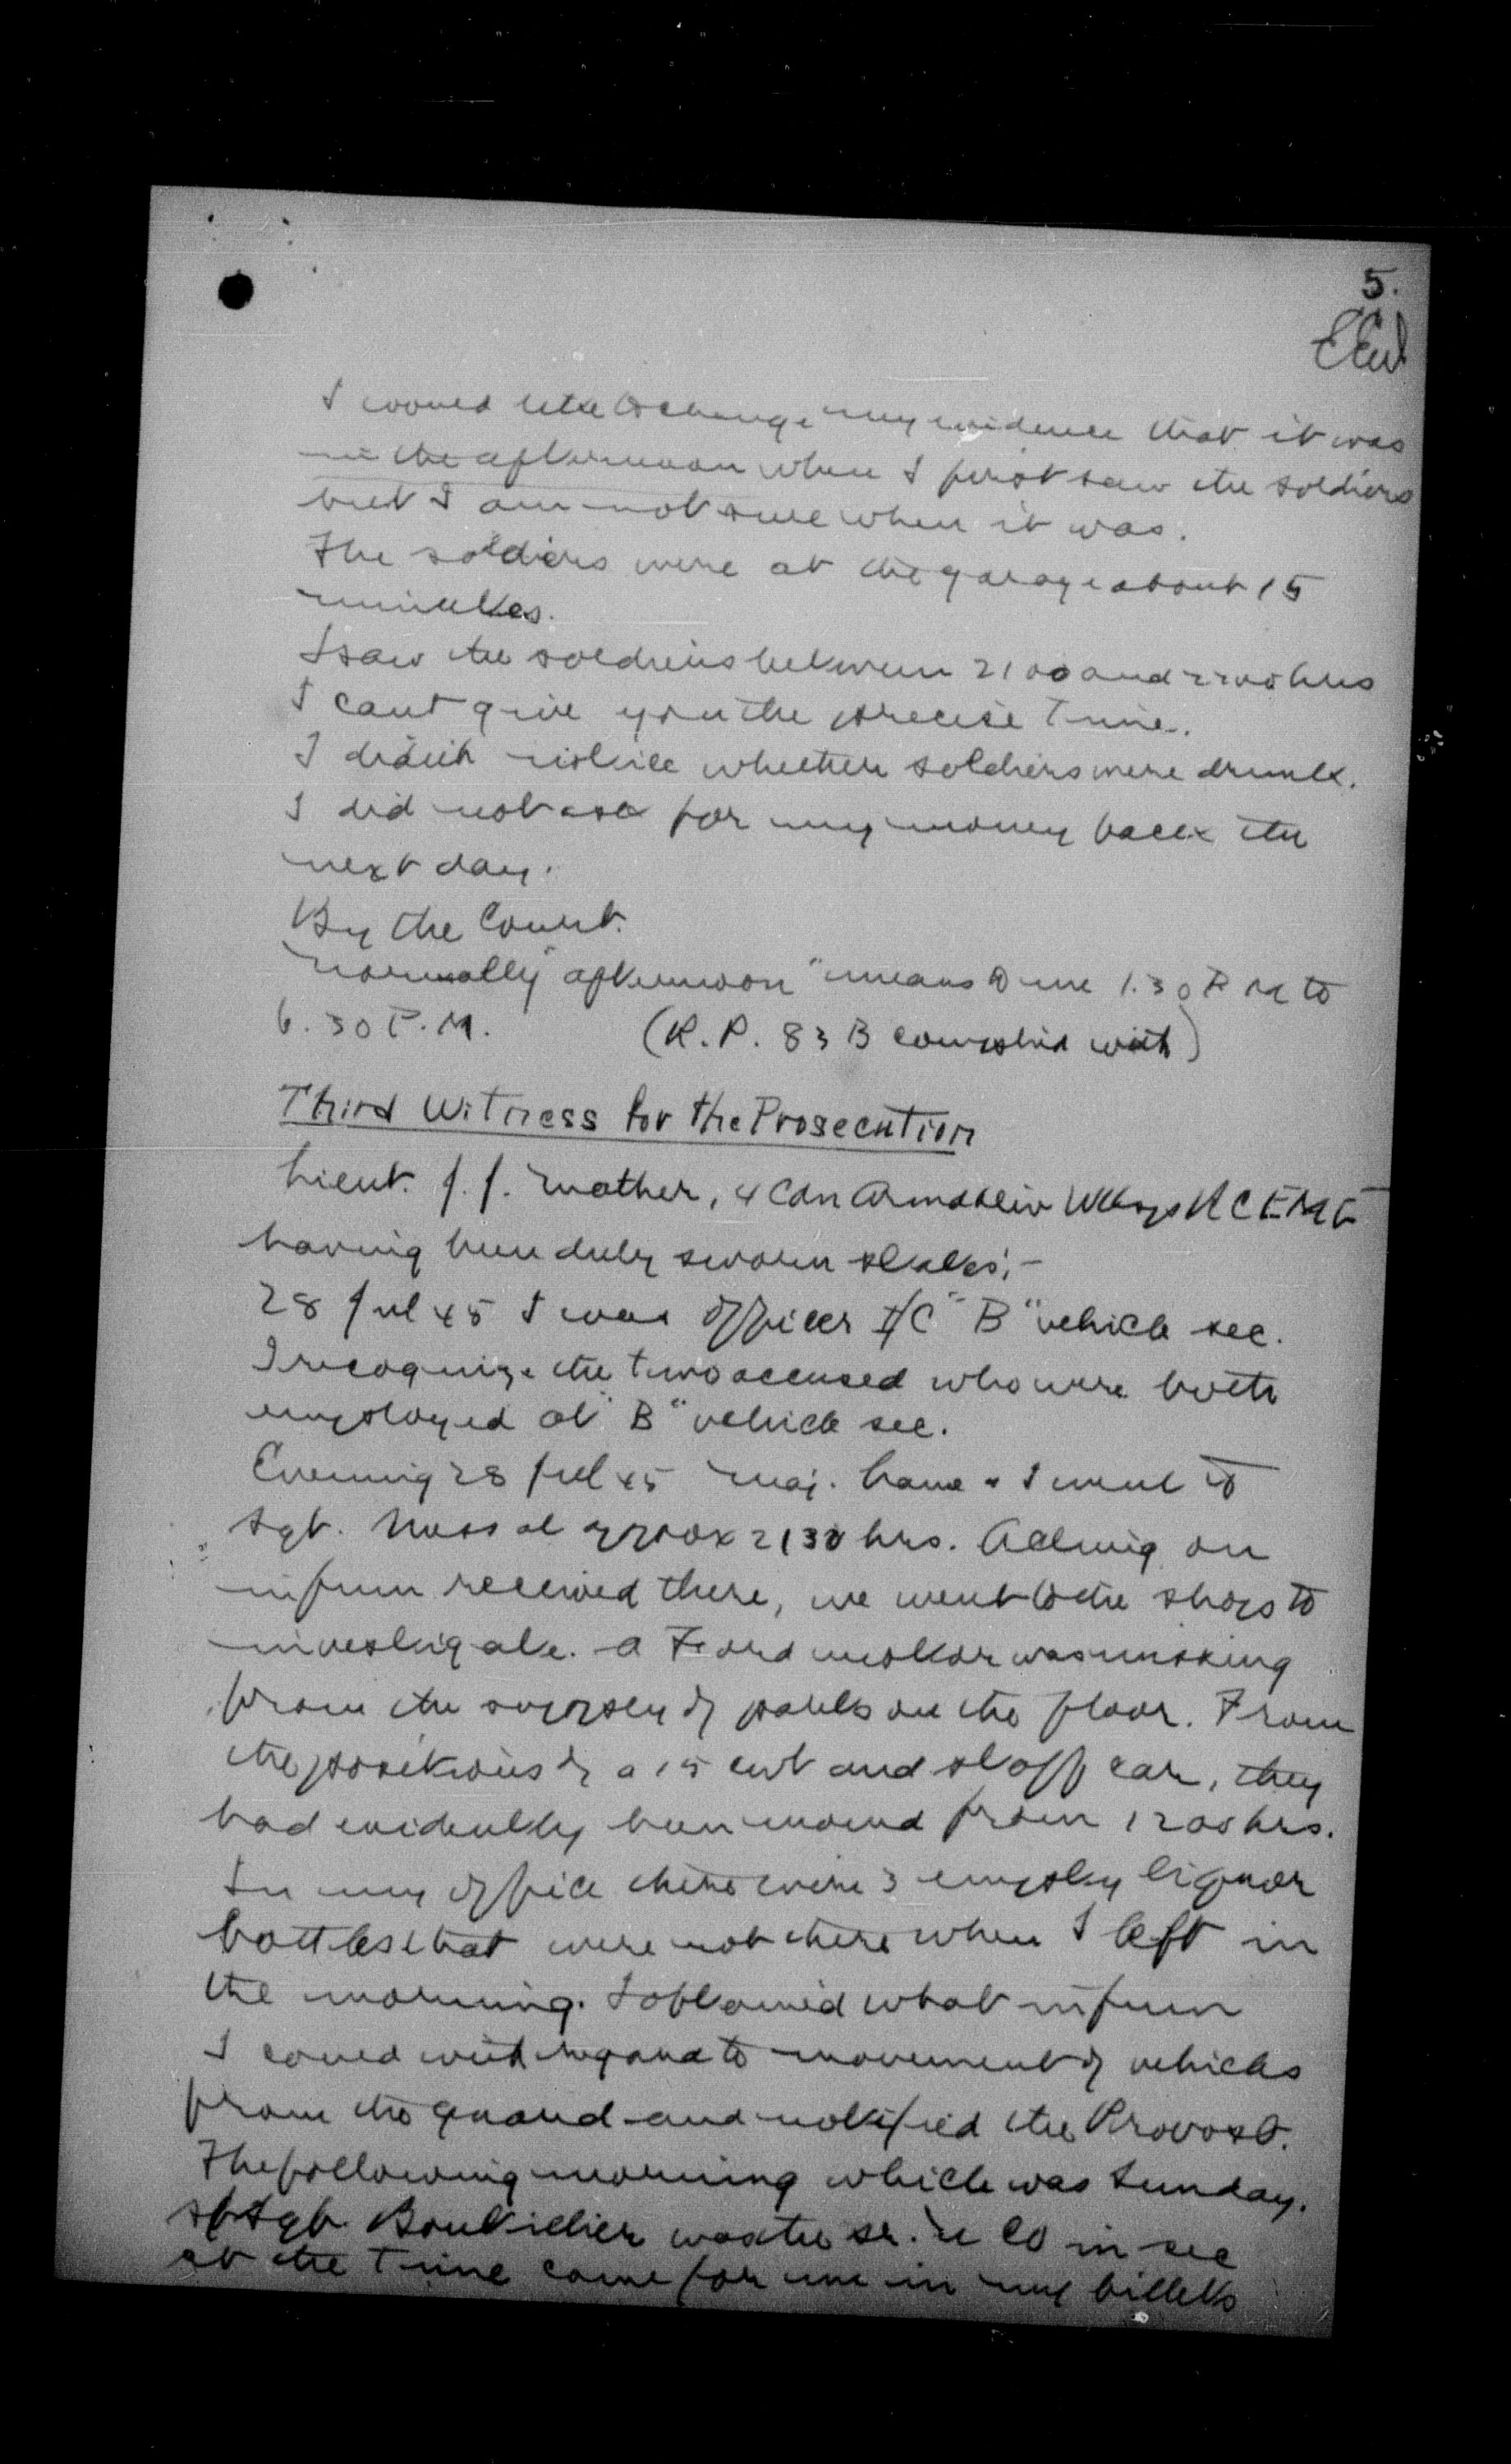 5.
I would like to change my evidence that it was
in the afternoon when I first saw the soldiers
but I am not sure when it was.
The soldiers were at the garage about 15
minutes.
I saw the soldiers between 2100 and 2200 hrs
I cant give you the precise time.
I didn't notice whether soldiers were drunk.
I did not ask for my money back the
next day.
By the Court.
Normally "afternoon" means to me 1.30 P.M to
6.30 P.M. (R.P. 83 B complied with)
Third Witness for the Prosecution
Lieut. J. J. Mather, 4 Cdn Armd Div Wksps RCEME
having been duly sworn states:-
28 Jul 45 I was officer I/C "B" vehicle sec.
I recognize the two accused who were both
employed at "B" vehicle sec.
Evening 28 Jul 45 Maj. & I went to
Sgt. Mess at approx 2130 hrs. Acting on
inform received there, we went to the shops to
investigate. A Ford motor was missing
from the supply of parts on the floor. From
the positions of a 15 cwt and staff car, they
had evidently been moved from 1200 hrs.
In my office there were 3 empty liquor
bottles that were not there when I left in
the morning. I obtained what inform
I could with regard to movement of vehicles
from the guard and notified the Provost.
The following morning which was Sunday.
S/Sgt. Boutilier was the sr. N C O in sec
at the time came for me in my billets